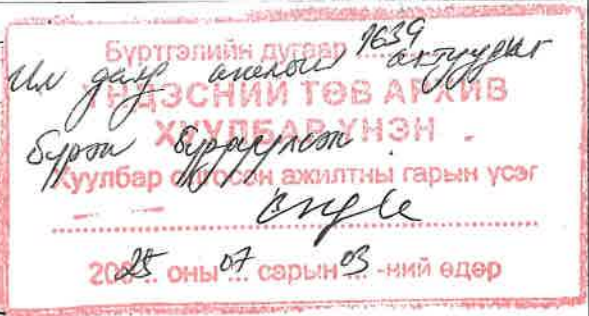 Бүртгэлийн дугаар 1639
Ил дахь
ҮНДЭСНИЙ ТӨВ АРХИВ
ХУУЛБАР ҮНЭН
бүрэн
Хуулбар олгосон ажилтны гарын үсэг
2025 оны 07 сарын 03 -ний өдөр